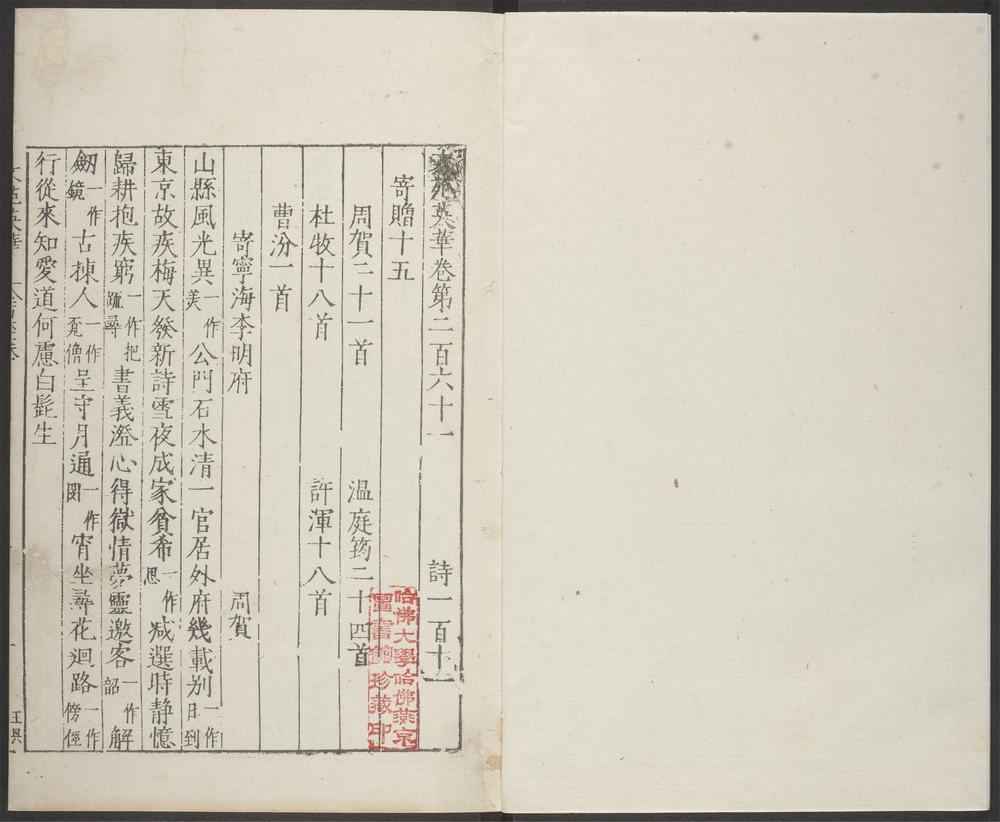 文苑英華卷第二百六十一 詩一百十一
寄贈十五
周賀二十一首 温庭筠二十四首
杜牧十八首 許渾十八首
曹汾一首
寄寧海李明府 周賀
山縣風光異一作美公門石水清一官居外府幾載别一作日到
東京故疾梅天發新詩雪夜成家貧希一作思减選時静憶
歸耕抱疾窮一作把疏尋書義澄心得獄情夢靈邀客一作韶解
劒一作鏡古揀人一作覔僧呈守月通一作閔宵坐尋花迴路一作傍徑
行從來知愛道何慮白髭生
哈佛大學哈佛燕京
圖書館珍藏印